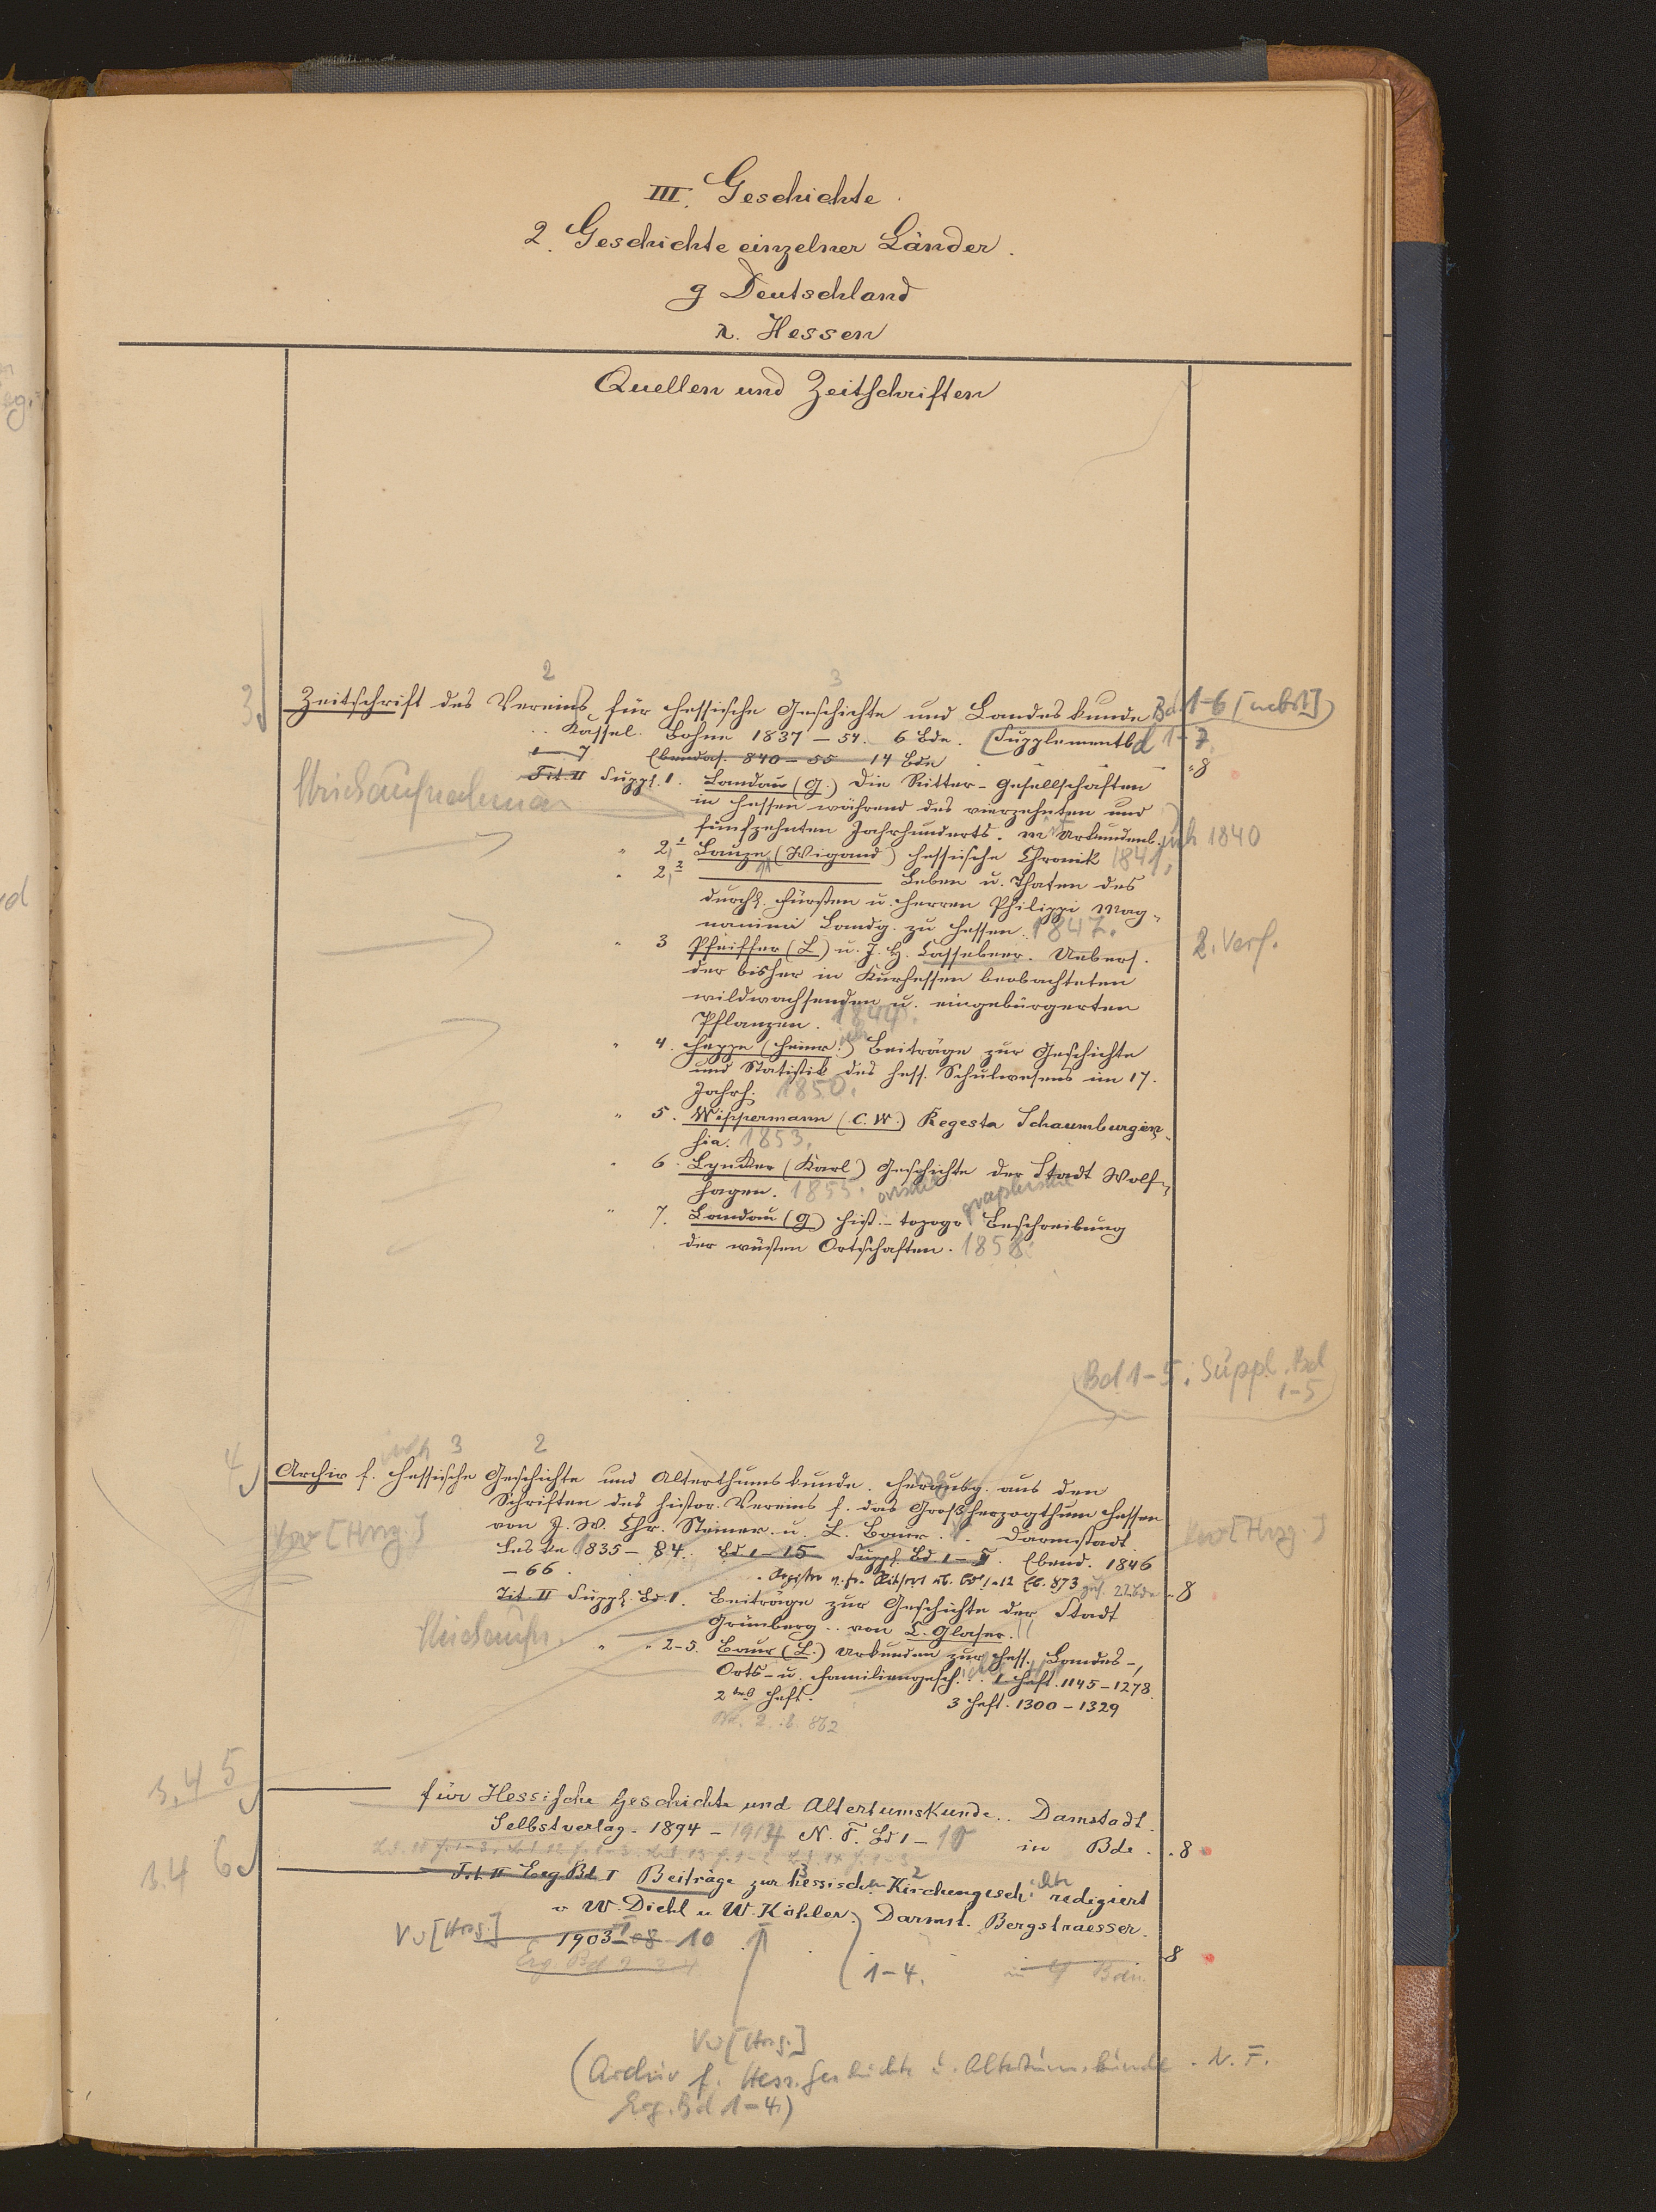 III. Geschichte.
2. Geschichte einzelner Länder.
g Deutschland
r. Hessen
Quellen und Zeitschriften
2 3
3
Zeitschrift des Vereins für hessische Geschichte und Landeskunde Bd 1-6 [nebst]
.. Kassel. Bohne 1837-54. 6 Bde. [Supplementbd 1-7.
1-7 Ebendas. 840-55 14 Bde "8
Tit. II Suppl. 1. Landau (G.) Die Ritter-Gesellschaften
Strichaufnahmen
in Hessen während des vierzehnten und
fünfzehnten Jahrhunderts. m Urkundenb. 1840
" 2,1 Lauze (Wigand) hessische Chronik 1841.
" 2,2 Leben u. Thaten des
durchl. Fürsten u. Herren Philippi Mag-
nanimi Landg. zu Hessen. 1847.
" 3 Pfeiffer (L) u. J. H. Cassebeer. Uebers. 2. Verf.
der bisher in Kurhessen beobachteten
wildwachsenden u. eingebürgerten
Pflanzen. 1844.
" 4. Heppe (Heinr.) Beiträge zur Geschichte
und Statistik des hess. Schulwesens im 17.
Jahrh. 1850.
" 5. Wippermann (C. W.) Regesta Schaumburgen-
sia. 1853.
" 6. Lynker (Karl) Geschichte der Stadt Wolf-
hagen. 1855. orische graphische
" 7. Landau (G) hist.-topogr Beschreibung
der wüsten Ortschaften. 1858.
(Bd 1-5. Suppl. Bd
1-5)
3 2
4
Archiv f. hessische Geschichte und Alterthumskunde. Herausg. aus den
Schriften des histor. Vereins f. das Grossherzogthum Hessen
Vw [Hrsg.] von J. W. Chr. Steiner u. L. Baur. Darmstadt. Vw [Hrsg.]
Leske 835-84. Bd 1-15 Suppl. Bd 1-5. Ebend. 1846
-66. Register Bd 1-12 Eb. 873 22 Bde "8
Tit. II Suppl. Bd. 1. Beiträge zur Geschichte der Stadt
Grünberg .. von L. Glaser.
Strichaufn.
" " 2-5. Baur (L.) Urkunden zur hess. Landes-,
Orts- u. Familiengesch. .. 1 Heft. 1145-1278
2tes Heft. 3 Heft. 1300-1329
Bd. 2. 862
3.4 5
für Hessische Geschichte und Altertumskunde.. Damstadt.
Selbstverlag. 1894-1914 N. F. Bd 1-10 in Bde. "8
3.4 6
Tit. II Erg Bd. I Beiträge zur hessischen Kirchengesch. redigiert
v W. Diehl u W. Köhler. Darmst. Bergstraesser.
Vw [Hrsg.] 1903-08 10 "8
Erg. Bd 2 3 4 1-4. in 4 Bdn.
Vw [Hrsg.]
(Archiv f. Hess. Geschichte u. Altertumskunde. N. F.
Erg. Bd 1-4.)